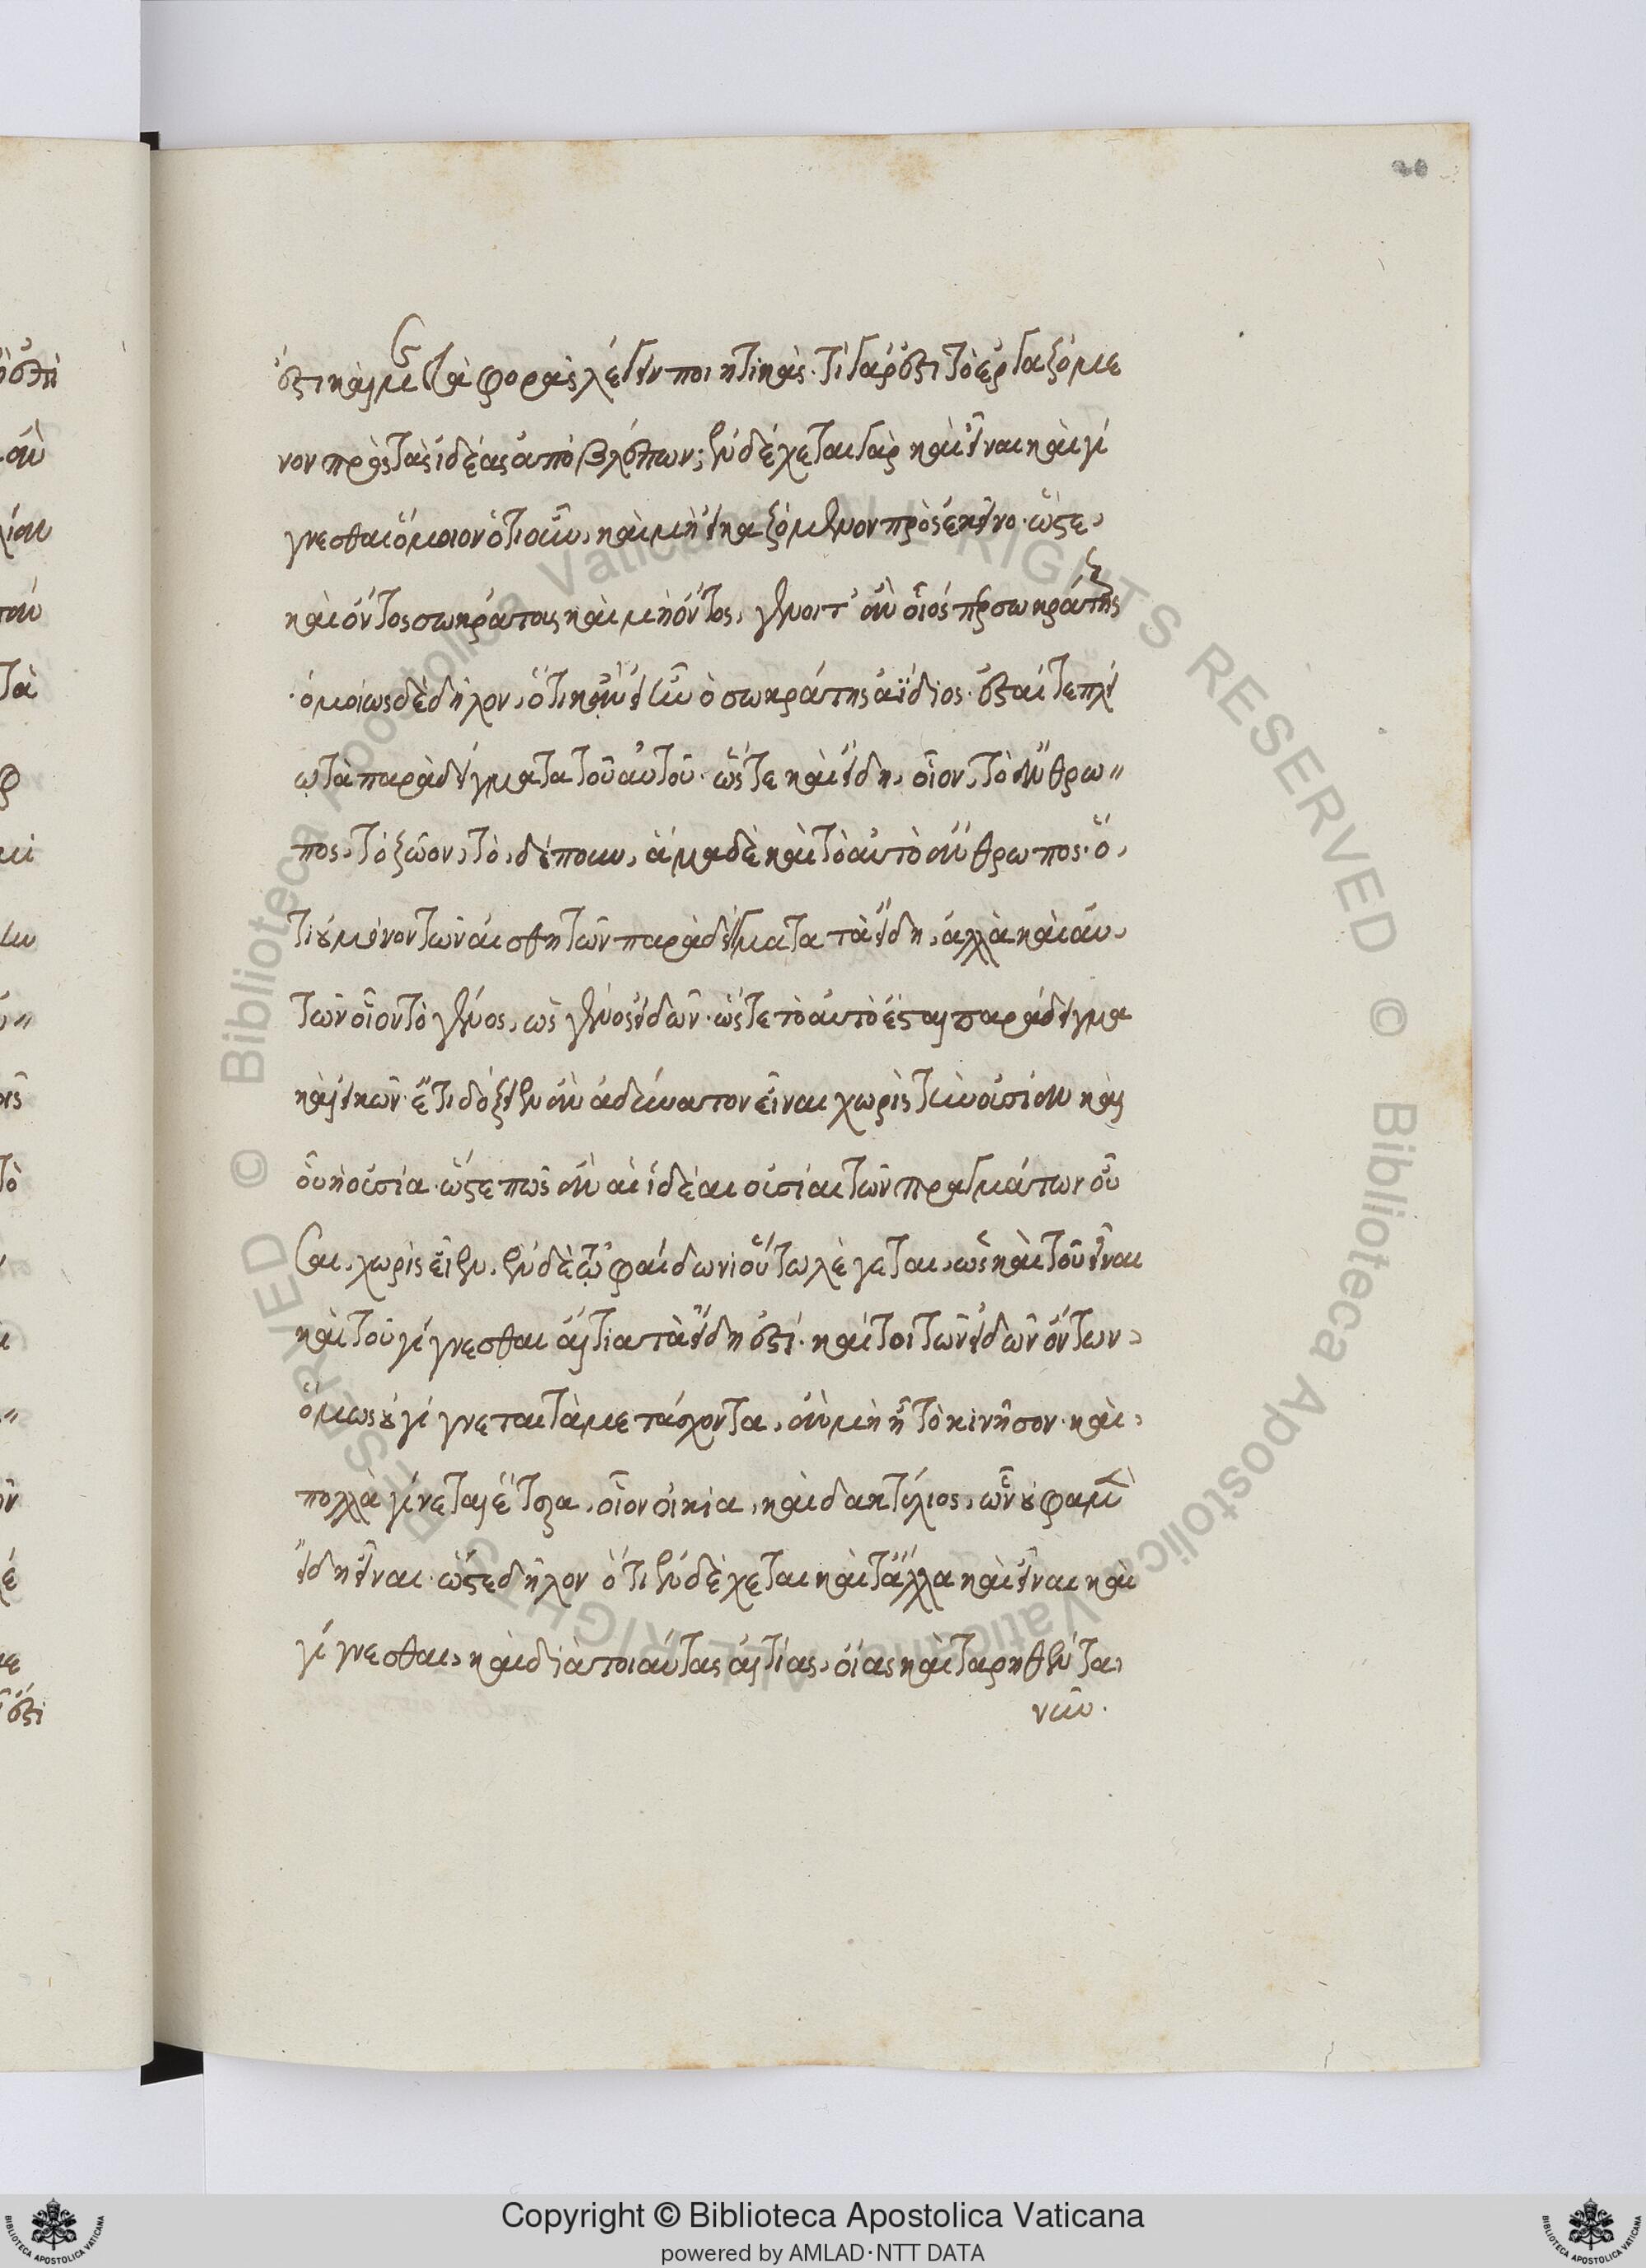 20
ἐστι καὶ μεταφορὰς λέγειν ποιητικάς· τί γάρ ἐστι τὸ ἐργαζόμε
νον πρὸς τὰς ἰδέας ἀποβλέπων; ἐνδέχεται γὰρ καὶ εἶναι καὶ γί
γνεσθαι ὅμοιον ὁτιοῦν, καὶ μὴ εἰκαζόμενον πρὸς ἐκεῖνο· ὥστε,
καὶ ὄντος σωκράτους καὶ μὴ ὄντος, γένοιτ' ἂν οἷός περ σωκράτης
ὁμοίως δὲ δῆλον, ὅτι κἂν εἰ ἦν ὁ σωκράτης ἀΐδιος· ἔσται τε πλεί
ω τὰ παραδείγματα τοῦ αὐτοῦ· ὥστε καὶ εἴδη, οἷον, τὸ ἄνθρω"
πος, τὸ ζῶον, τὸ, δίπουν, ἅμα δὲ καὶ τὸ αὐτὸ ἄνθρωπος· ὅ,
τι οὐ μόνον τῶν αἰσθητῶν παραδείγματα τὰ εἴδη, ἀλλὰ καὶ αὐ,
τῶν οἷον τὸ γένος, ὡς γένος εἰδῶν· ὥστε τὸ αὐτὸ ἔσται παράδειγμα
καὶ εἰκών· ἔτι δόξειεν ἂν ἀδύνατον εἶναι χωρὶς τὴν οὐσίαν καὶ
οὗ ἡ οὐσία· ὥστε πῶς ἂν αἱ ἰδέαι οὐσίαι τῶν πραγμάτων οὖ
σαι, χωρὶς εἶεν, ἐν δὲ τῷ φαίδωνι οὕτω λέγεται, ὡς καὶ τοῦ εἶναι
καὶ τοῦ γίγνεσθαι αἴτια τὰ εἴδη ἐστί· καίτοι τῶν εἰδῶν ὄντων,
ὅμως οὐ γίγνεται τὰ μετέχοντα, ἂν μὴ ᾖ τὸ κινῆσον· καὶ,
πολλὰ γίνεται ἕτερα, οἷον οἰκία, καὶ δακτύλιος, ὧν οὔ φαμεν
εἴδη εἶναι· ὥστε δῆλον ὅτι ἐνδέχεται καὶ τἄλλα καὶ εἶναι καὶ
γίγνεσθαι, καὶ διὰ τοιαύτας αἰτίας, οἵας καὶ τὰ ῥηθέντα,
νῦν.
Copyright © Biblioteca Apostolica Vaticana
powered by AMLAD·NTT DATA